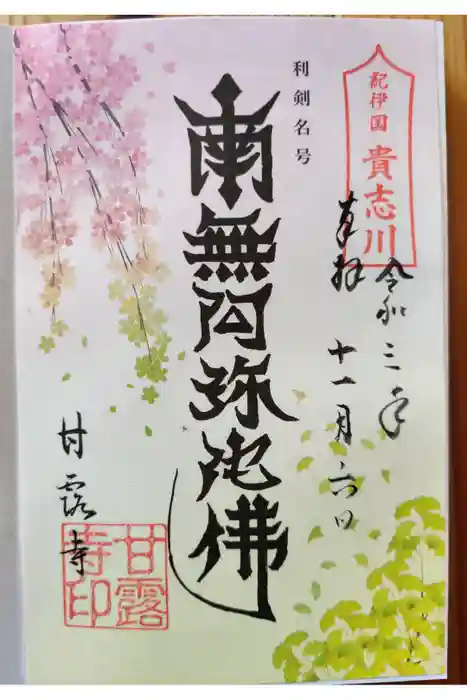 紀伊国 貴志川
令和三年
奉拝 十一月六日
利剣名号
南無阿弥陀佛
甘露寺
甘露寺印